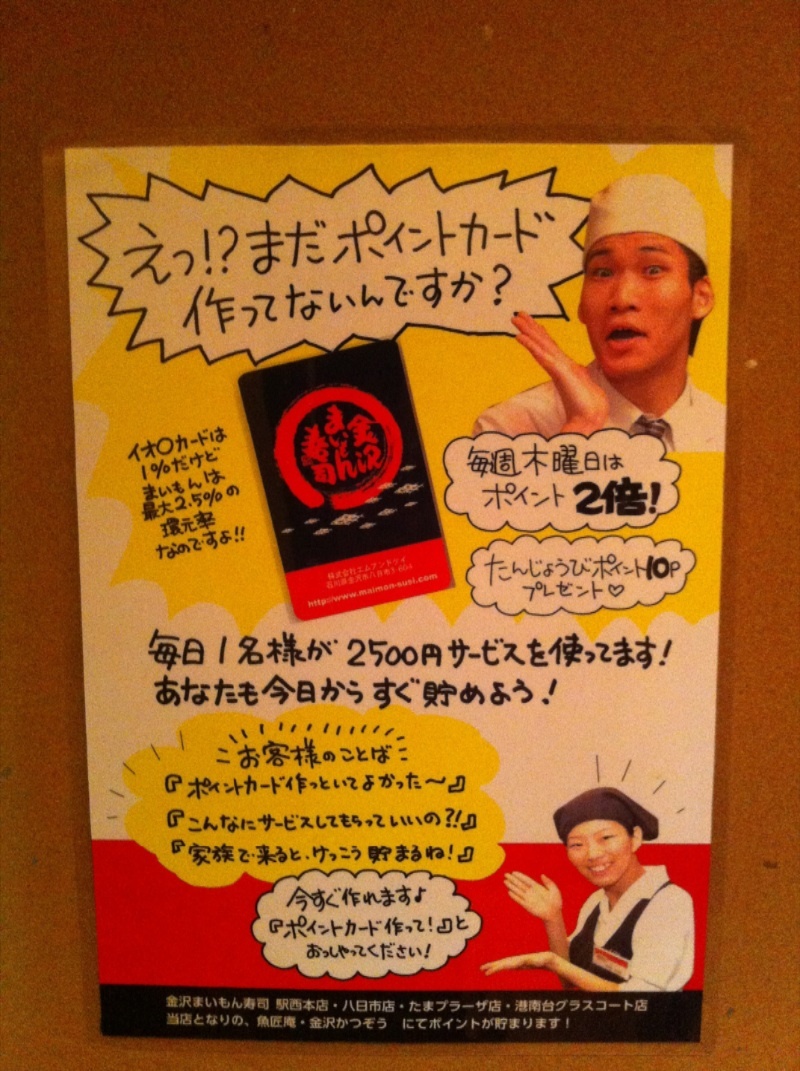 えっ!?まだポイントカード
作ってないんですか?
金沢
まいもん
寿司
イオ〇カードは
1%だけど
まいもんは
最大2.5%の
還元率
なのですよ!!
株式会社エムアンドケイ
http://www.maimon-susi.com
毎週木曜日は
ポイント2倍!
たんじょうびポイント10P
プレゼント♡
毎日1名様が2500円サービスを使ってます!
あなたも今日からすぐ貯めよう!
お客様のことば
『ポイントカード作っといてよかった〜』
『こんなにサービスしてもらっていいの?!』
『家族で来ると、けっこう貯まるね!』
今すぐ作れます♪
『ポイントカード作って!』と
おっしゃってください!
金沢まいもん寿司 駅西本店・八日市店・たまプラーザ店・港南台グラスコート店
当店となりの、魚匠庵・金沢かつぞう にてポイントが貯まります!